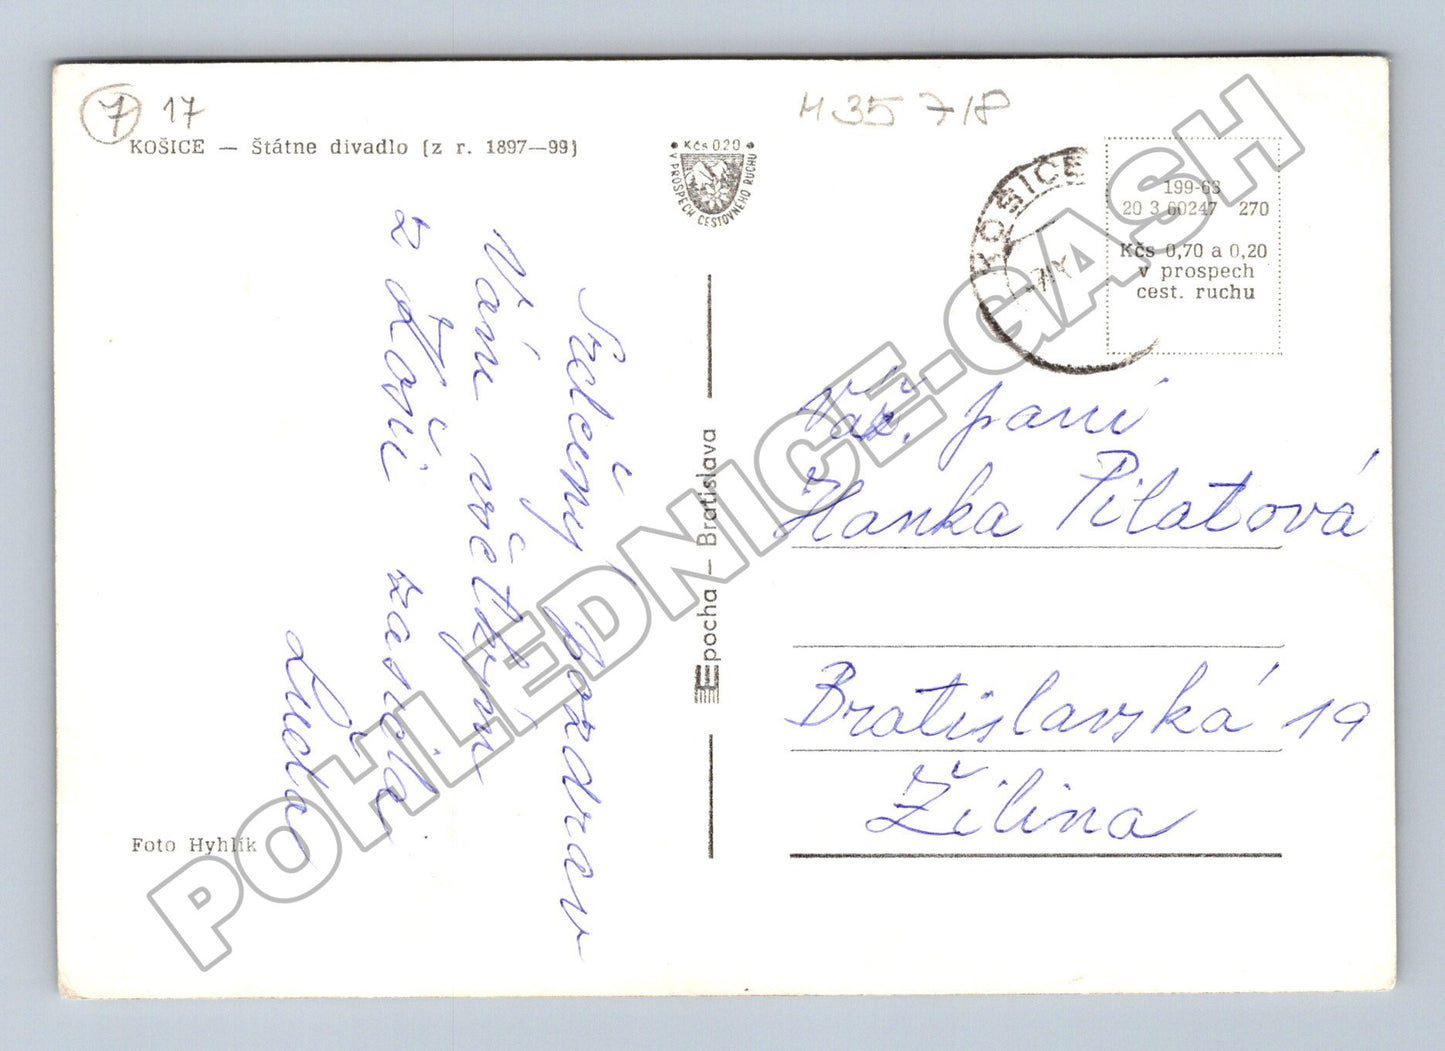 7 17
KOŠICE — Štátne divadlo (z r. 1897—99)
Kčs 0.20
V PROSPECH CESTOVNÉHO RUCHU
H 35 718
KOŠICE
199-63
20 3 60247 270
Kčs 0,70 a 0,20
v prospech
cest. ruchu
Srdečný pozdrav
Vám všetkým
z Košíc zasiela
Epocha — Bratislava
Váž. pani
Hanka Pilatová
Bratislavská 19
Žilina
Foto Hyhlík
POHLEDNICE-GASH